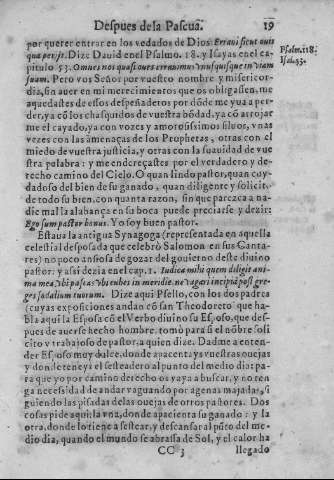 Despues de la Pascuā. 19
por querer entrar en los vedados de Dios: Erraui sicut ouis
quæ perijt. Dize Dauid en el Psalmo. 18. y Isayas en el ca-
Psalm. 118.
pitulo 53. Omnes nos quasi oues errauimus vnusquisque in viam
Isai. 53.
suam. Pero vos Señor por vuestro nombre y misericor-
dia, sin auer en mi merecimientos que os obligassen, me
aquedastes de essos despeñaderos por dōde me yua a per-
der, ya cō los chasquidos de vuestra hōda, ya cō arrojar
me el cayado, ya con vozes y amorosissimos siluos, vnas
vezes con las amenaças de los Prophetas, otras con el
miedo de vuestra justicia, y otras con la suauidad de vue
stra palabra: y me endereçastes por el verdadero y de-
recho camino del Cielo. O quan lindo pastor, quan cuy
dadoso del bien de su ganado, quan diligente y solicit.
de todo su bien, con quanta razon, sin que parezca a na-
die mal la alabança en su boca puede preciarse y dezir:
Ego sum pastor bonus. Yo soy buen pastor.
Estaua la antigua Synagoga (representada en aquella
celestial desposada que celebrò Salomon en sus Canta-
res) no poco ansiosa de gozar del gouierno deste diuino
pastor: y assi dezia en el cap. 1. Indica mihi quem diligit ani-
ma mea, vbi pascas vbi cubes in meridie, ne vagari incipiā post gre
ges sodalium tuorum. Dize aqui Psello, con los dos padres
(cuyas exposiciones andan cō san Theodoreto que ha-
bla aqui la Esposa cō el Verbo diuino su Esposo, que des-
pues de auerse hecho hombre, tomò para si el nōbre, soli
cito y trabajoso de pastor, a quien dize. Dadme a enten-
der Esposo muy dulce, donde apacentays vuestras ouejas
y donde teneys el sesteadero al punto del medio dia: pa-
ra que yo por camino derecho os vaya a buscar, y no ten
ga necessidad de andar vagueando por agenas majadas, si
guiendo las pisadas de las ouejas de otros pastores. Dos
cosas pide aqui: la vna, donde apacienta su ganado: y la
otra, donde lo tiene a sestear, y descansar al pūto del me-
dio dia, quando el mundo se abrassa de Sol, y el calor ha
CC 3 llegado